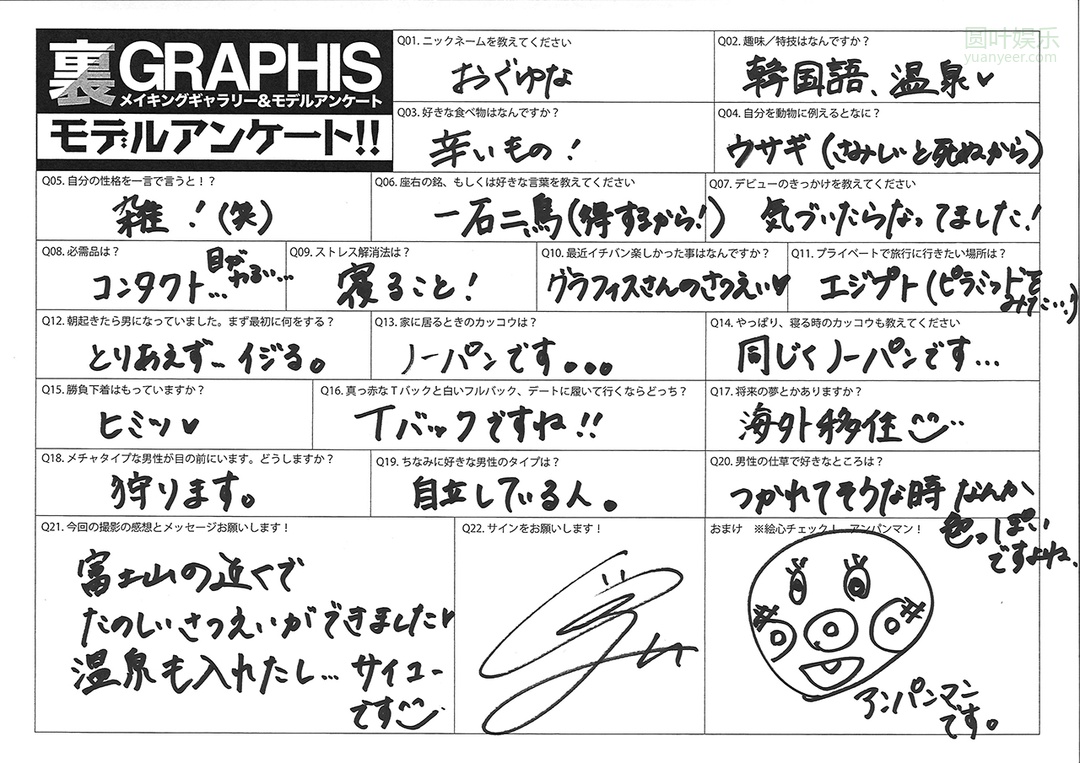 圆叶娱乐
yuanyeer.com
裏GRAPHIS
メイキングギャラリー&モデルアンケート
モデルアンケート!!
Q01. ニックネームを教えてください
おぐゆな
Q02. 趣味／特技はなんですか？
韓国語、温泉♥
Q03. 好きな食べ物はなんですか？
辛いもの！
Q04. 自分を動物に例えるとなに？
ウサギ(さみしいと死ぬから)
Q05. 自分の性格を一言で言うと！？
雑！(笑)
Q06. 座右の銘、もしくは好きな言葉を教えてください
一石二鳥(得するから！)
Q07. デビューのきっかけを教えてください
気づいたらなってました！
Q08. 必需品は？
コンタクト…目がわるい…
Q09. ストレス解消法は？
寝ること！
Q10. 最近イチバン楽しかった事はなんですか？
グラフィスさんのさつえい♥
Q11. プライベートで旅行に行きたい場所は？
エジプト(ピラミッドを
みたい…)
Q12. 朝起きたら男になっていました。まず最初に何をする？
とりあえず…イジる。
Q13. 家に居るときのカッコウは？
ノーパンです。。。
Q14. やっぱり、寝る時のカッコウも教えてください
同じくノーパンです…
Q15. 勝負下着はもっていますか？
ヒミツ♥
Q16. 真っ赤なTバックと白いフルバック、デートに履いて行くならどっち？
Tバックですね!!
Q17. 将来の夢とかありますか？
海外移住
Q18. メチャタイプな男性が目の前にいます。どうしますか？
狩ります。
Q19. ちなみに好きな男性のタイプは？
自立している人。
Q20. 男性の仕草で好きなところは？
つかれてそうな時なんか
色っぽい
ですよね.
Q21. 今回の撮影の感想とメッセージお願いします！
富士山の近くで
たのしいさつえいができました♥
温泉も入れたし…サイコー
です
Q22. サインをお願いします！
おまけ　※絵心チェック！　アンパンマン！
アンパンマン
です。